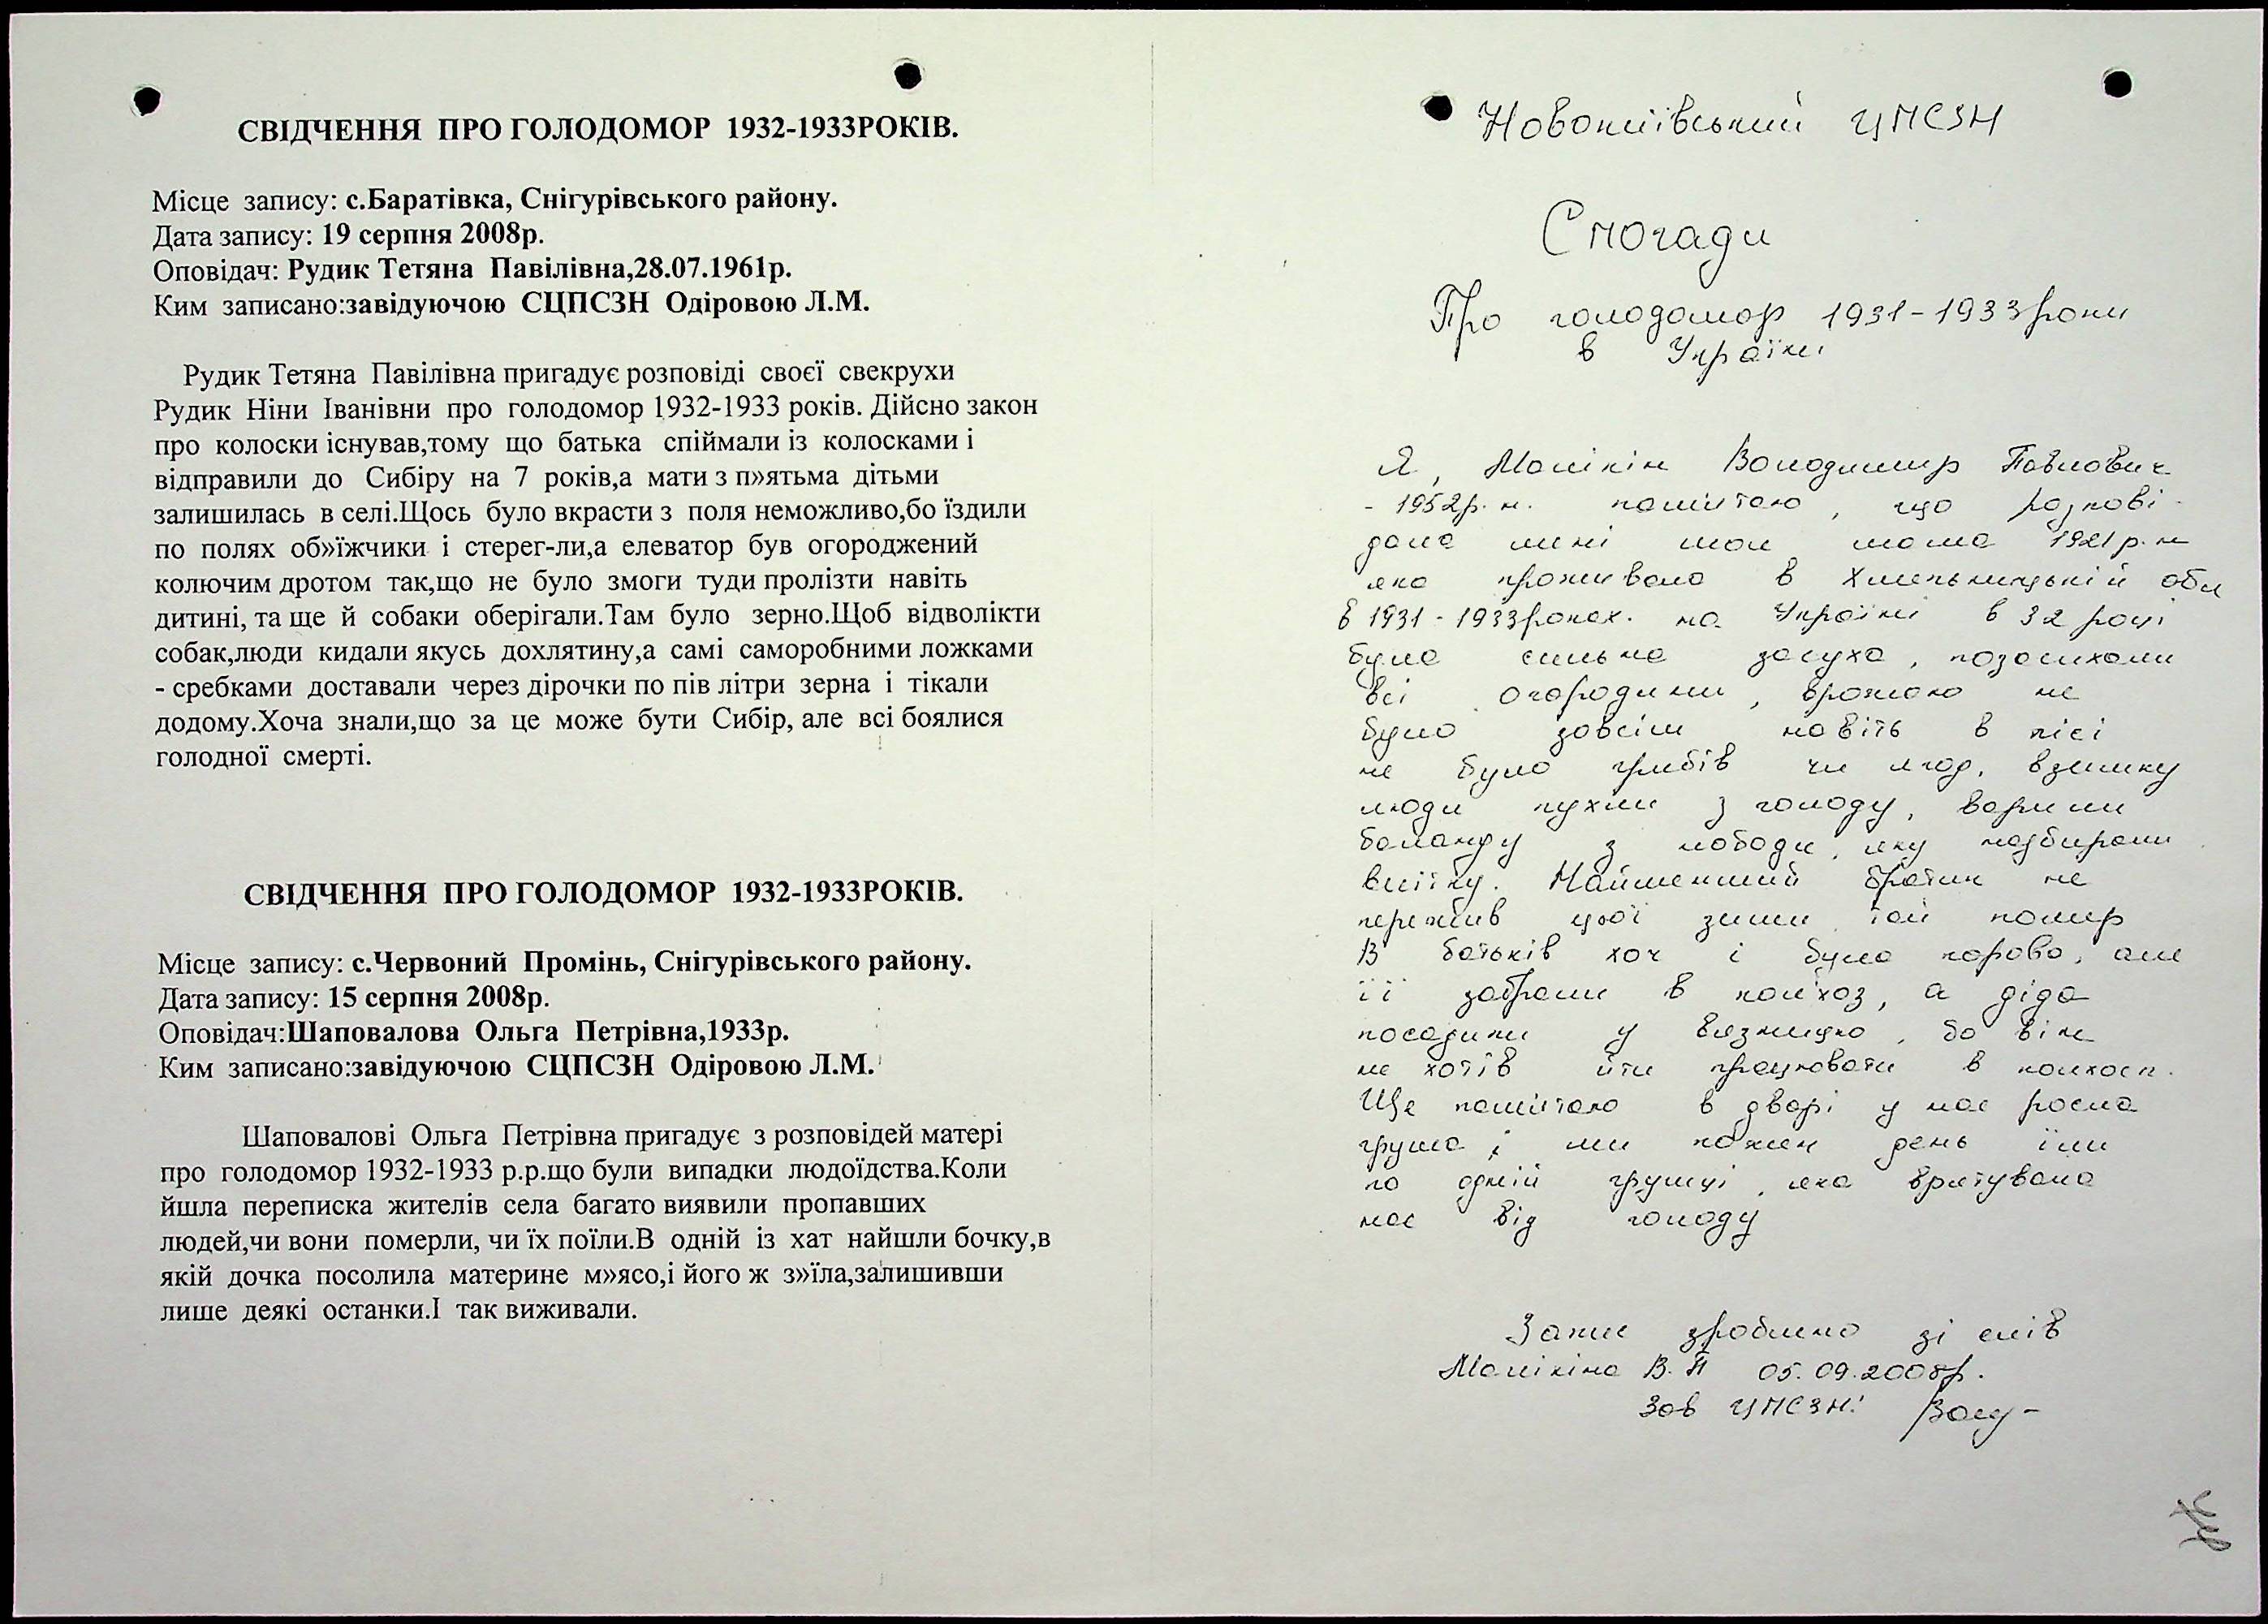 СВІДЧЕННЯ ПРО ГОЛОДОМОР 1932-1933РОКІВ.
Місце запису: с.Баратівка, Снігурівського району.
Дата запису: 19 серпня 2008р.
Оповідач: Рудик Тетяна Павілівна,28.07.1961р.
Ким записано:завідуючою СЦПСЗН Одіровою Л.М.
Рудик Тетяна Павілівна пригадує розповіді своєї свекрухи
Рудик Ніни Іванівни про голодомор 1932-1933 років. Дійсно закон
про колоски існував,тому що батька спіймали із колосками і
відправили до Сибіру на 7 років,а мати з п»ятьма дітьми
залишилась в селі.Щось було вкрасти з поля неможливо,бо їздили
по полях об»їжчики і стерег-ли,а елеватор був огороджений
колючим дротом так,що не було змоги туди пролізти навіть
дитині, та ще й собаки оберігали.Там було зерно.Щоб відволікти
собак,люди кидали якусь дохлятину,а самі саморобними ложками
- сребками доставали через дірочки по пів літри зерна і тікали
додому.Хоча знали,що за це може бути Сибір, але всі боялися
голодної смерті.
СВІДЧЕННЯ ПРО ГОЛОДОМОР 1932-1933РОКІВ.
Місце запису: с.Червоний Промінь, Снігурівського району.
Дата запису: 15 серпня 2008р.
Оповідач:Шаповалова Ольга Петрівна,1933р.
Ким записано:завідуючою СЦПСЗН Одіровою Л.М.
Шаповалові Ольга Петрівна пригадує з розповідей матері
про голодомор 1932-1933 р.р.що були випадки людоїдства.Коли
йшла переписка жителів села багато виявили пропавших
людей,чи вони померли, чи їх поїли.В одній із хат найшли бочку,в
якій дочка посолила материне м»ясо,і його ж з»їла,залишивши
лише деякі останки.І так виживали.
Новокиївський ЦПСЗН
Спогади
Про голодомор 1931-1933роки
в Україні
Я, Малікін Володимир Павлович
- 1952р.н. памітаю, що розпові-
дала мині моя мама 1921р.н
яка проживала в Хмельницькій обл
в 1931-1933роках. на Україні в 32 році
була сильна засуха, позасихали
всі огородини, врожаю не
було зовсім навіть в лісі
не було грибів чи ягод, взимку
люди пухли з голоду, варили
баланду з лободи, яку назбирали
влітку. Найменший братик не
пережив цьої зими той помир
В батьків хоч і була корова, але
її забрали в колхоз, а діда
посадили у вязницю, бо він
не хотів йти працювати в колхосп.
Ще памітаю в дворі у нас росла
груша, і ми кожен день їли
по одній грушці, яка врятувала
нас від голоду
Запис зроблено зі слів
Малікіна В.П 05.09.2008р.
Зав ЦПСЗН: